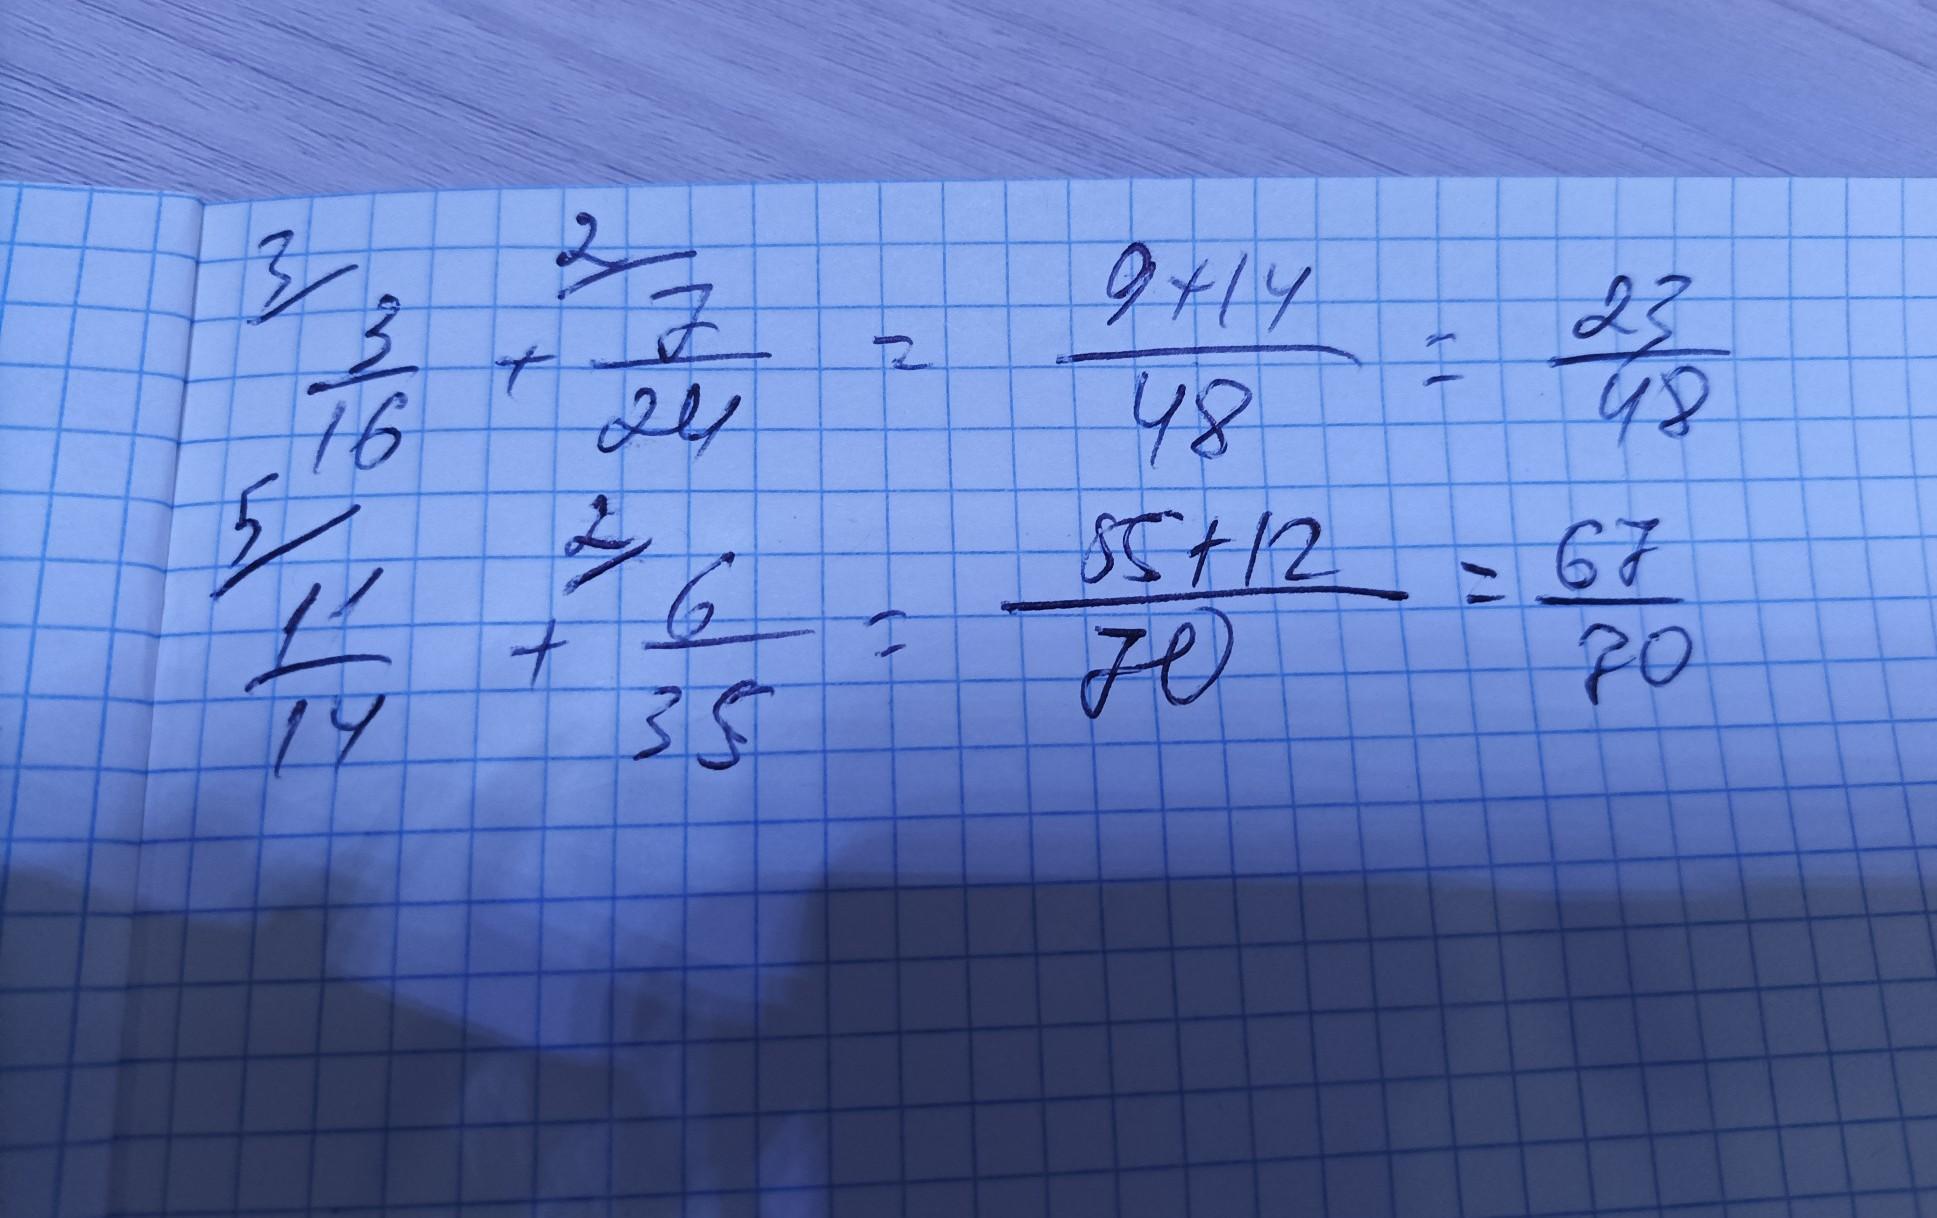 3/ 3/16 + 2/ 7/24 = (9+14)/48 = 23/48
5/ 11/14 + 2/ 6/35 = (55+12)/70 = 67/70